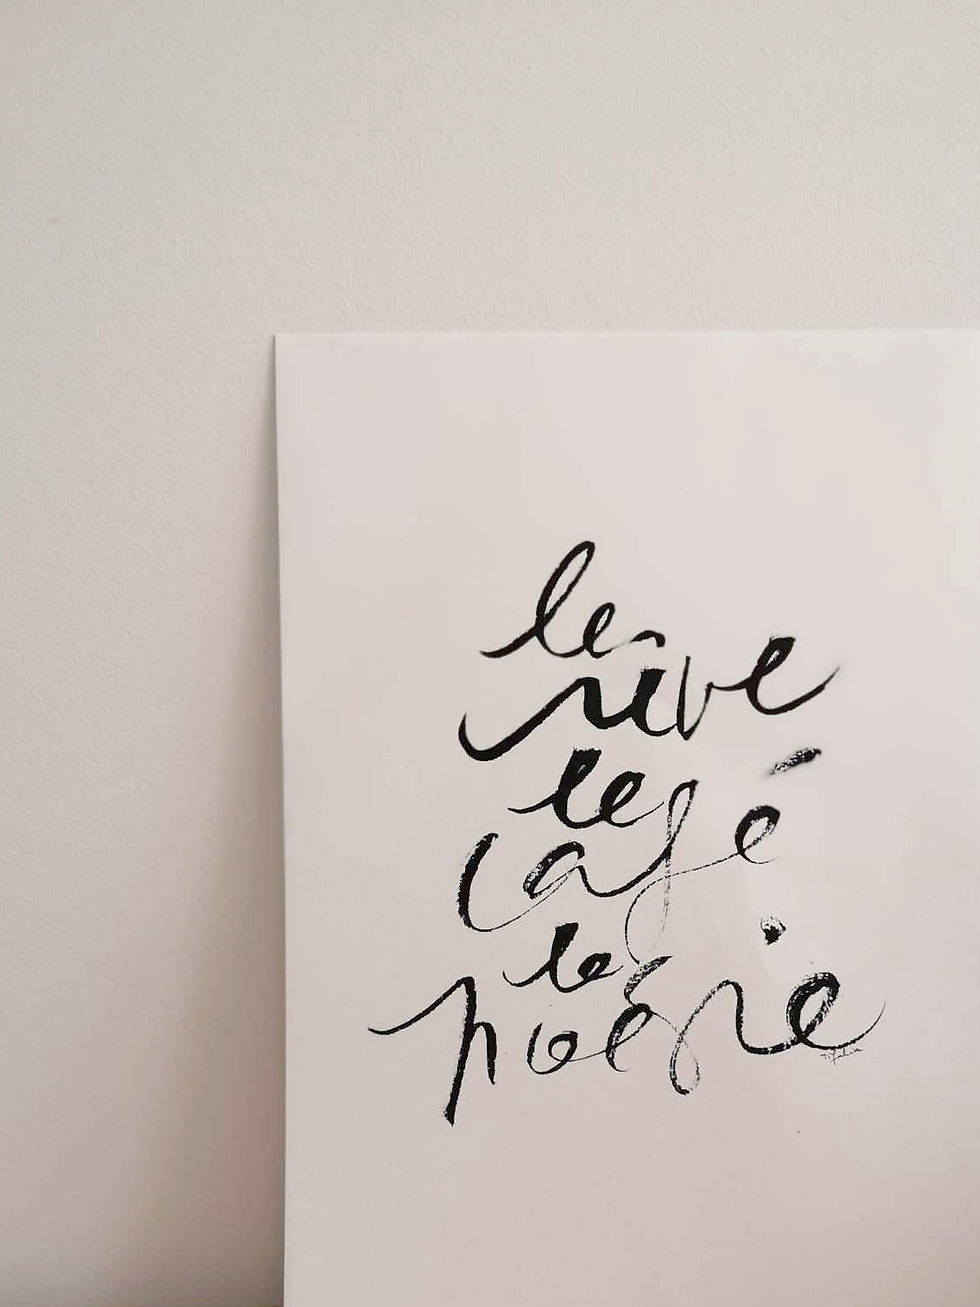 le
rêve
le
café
la
poésie